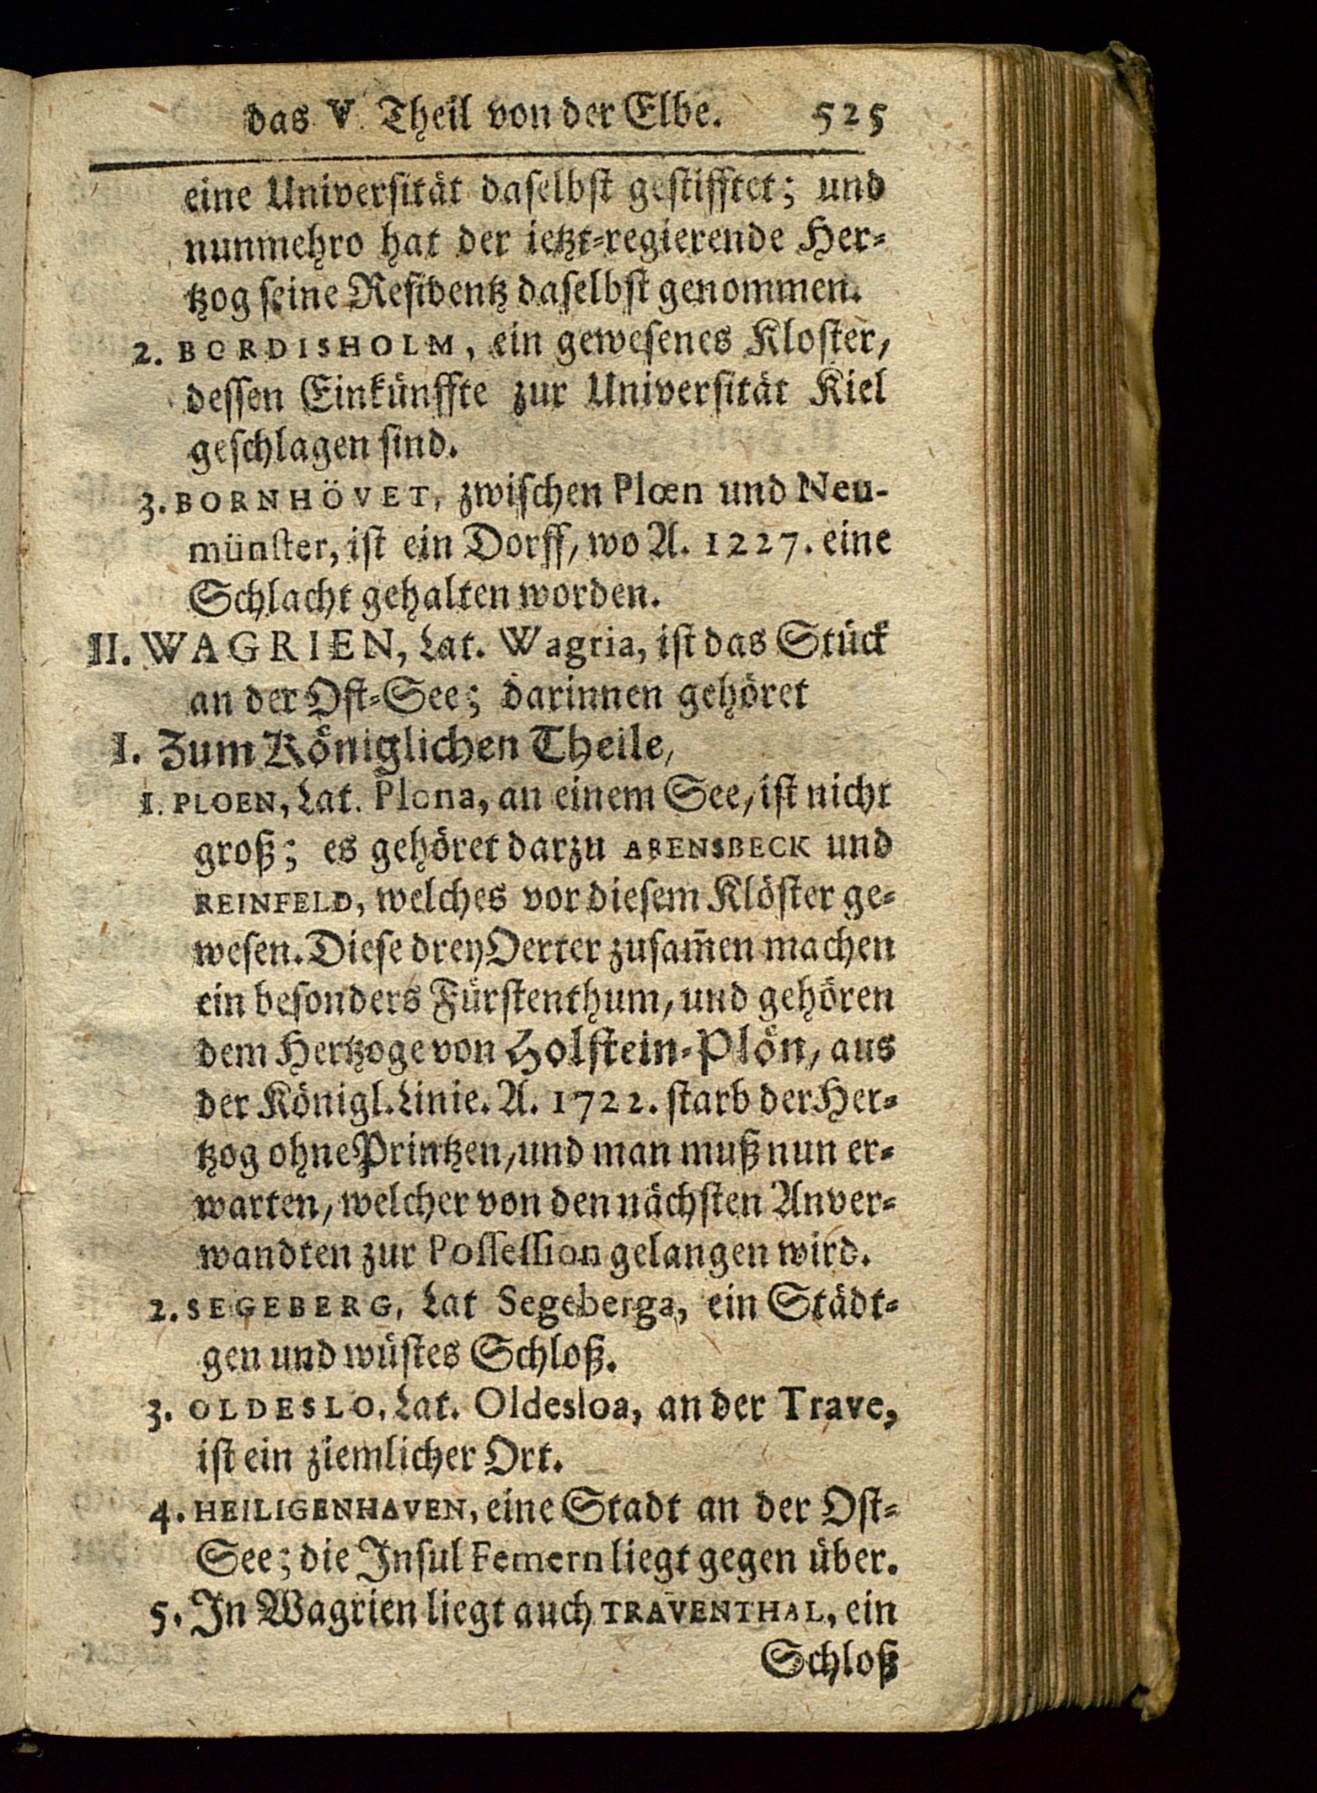 das V. Theil von der Elbe. 525
eine Universität daselbst gestifftet; und
nunmehro hat der ietzt-regierende Her-
tzog seine Residentz daselbst genommen.
2. BORDISHOLM, ein gewesenes Kloster,
dessen Einkünffte zur Universität Kiel
geschlagen sind.
3. BORNHÖVET, zwischen Ploen und Neu-
münster, ist ein Dorff, wo A. 1227. eine
Schlacht gehalten worden.
II. WAGRIEN, Lat. Wagria, ist das Stück
an der Ost-See; darinnen gehöret
I. Zum Königlichen Theile,
1. PLOEN, Lat. Plona, an einem See, ist nicht
groß; es gehöret darzu ARENSBECK und
REINFELD, welches vor diesem Klöster ge-
wesen. Diese drey Oerter zusam̅en machen
ein besonders Fürstenthum, und gehören
dem Hertzoge von Holstein-Plön, aus
der Königl. Linie. A. 1722. starb der Her-
tzog ohne Printzen, und man muß nun er-
warten, welcher von den nächsten Anver-
wandten zur Possession gelangen wird.
2. SEGEBERG, Lat Segeberga, ein Städt-
gen und wüstes Schloß.
3. OLDESLO, Lat. Oldesloa, an der Trave,
ist ein ziemlicher Ort.
4. HEILIGENHAVEN, eine Stadt an der Ost-
See; die Insul Femern liegt gegen über.
5. In Wagrien liegt auch TRAVENTHAL, ein
Schloß